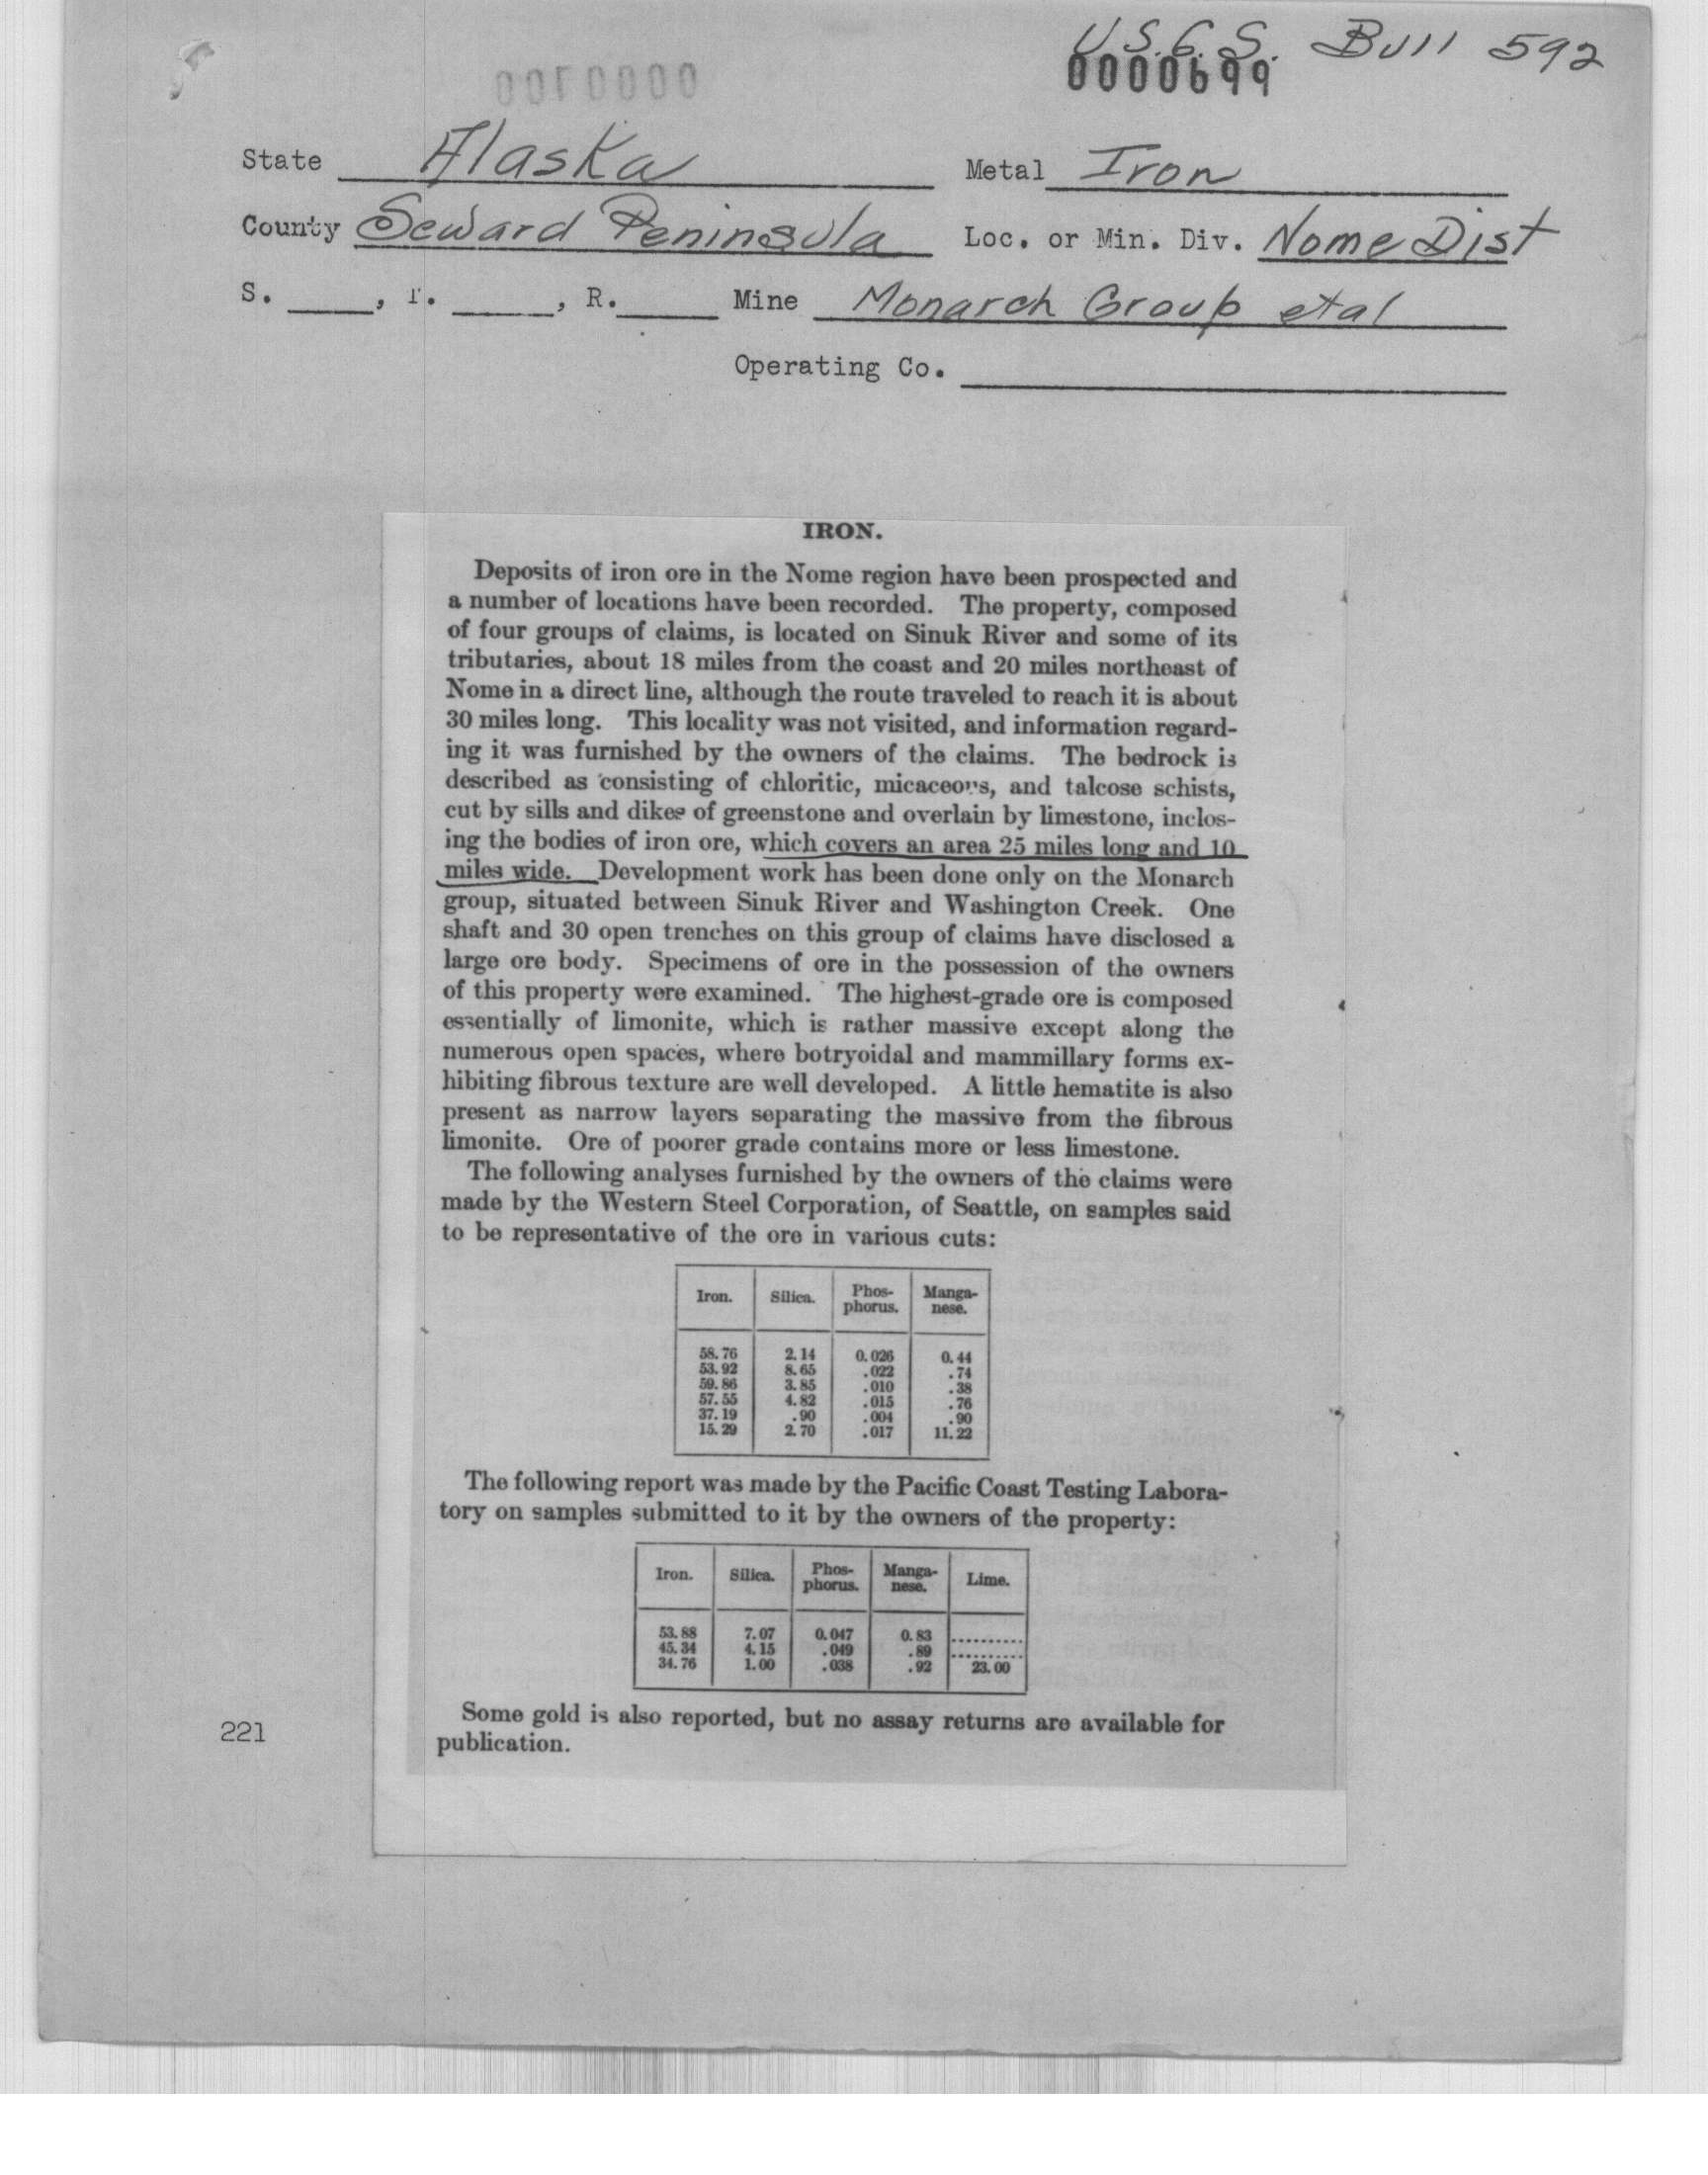 U.S.G.S. Bull 592
0000100
0000699
State Alaska Metal Iron
County Seward Peninsula Loc. or Min. Div. Nome Dist
S. ____, T. ____, R. ____ Mine Monarch Group etal
Operating Co.
IRON.
Deposits of iron ore in the Nome region have been prospected and
a number of locations have been recorded. The property, composed
of four groups of claims, is located on Sinuk River and some of its
tributaries, about 18 miles from the coast and 20 miles northeast of
Nome in a direct line, although the route traveled to reach it is about
30 miles long. This locality was not visited, and information regard-
ing it was furnished by the owners of the claims. The bedrock is
described as consisting of chloritic, micaceous, and talcose schists,
cut by sills and dikes of greenstone and overlain by limestone, inclos-
ing the bodies of iron ore, which covers an area 25 miles long and 10
miles wide. Development work has been done only on the Monarch
group, situated between Sinuk River and Washington Creek. One
shaft and 30 open trenches on this group of claims have disclosed a
large ore body. Specimens of ore in the possession of the owners
of this property were examined. The highest-grade ore is composed
essentially of limonite, which is rather massive except along the
numerous open spaces, where botryoidal and mammillary forms ex-
hibiting fibrous texture are well developed. A little hematite is also
present as narrow layers separating the massive from the fibrous
limonite. Ore of poorer grade contains more or less limestone.
The following analyses furnished by the owners of the claims were
made by the Western Steel Corporation, of Seattle, on samples said
to be representative of the ore in various cuts:
Iron. Silica. Phos-phorus. Manga-nese.
58.76 2.14 0.026 0.44
53.92 8.65 .022 .74
59.86 3.85 .010 .38
57.55 4.82 .015 .76
37.19 .90 .004 .90
15.29 2.70 .017 11.22
The following report was made by the Pacific Coast Testing Labora-
tory on samples submitted to it by the owners of the property:
Iron. Silica. Phos-phorus. Manga-nese. Lime.
53.88 7.07 0.047 0.83 ..........
45.34 4.15 .049 .89 ..........
34.76 1.00 .038 .92 23.00
Some gold is also reported, but no assay returns are available for
publication.
221